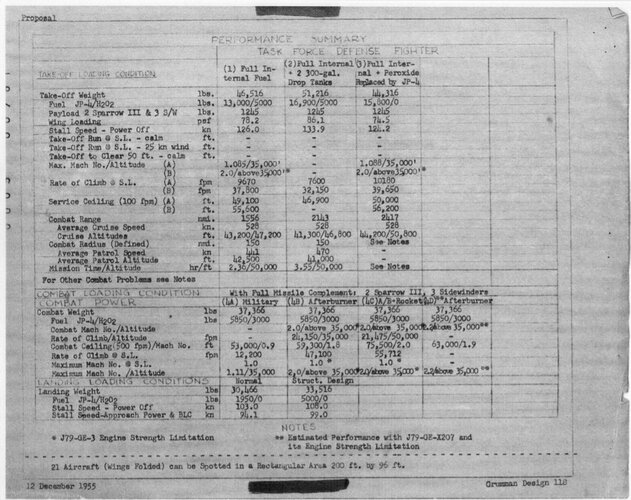 Proposal
PERFORMANCE SUMMARY
TASK FORCE DEFENSE FIGHTER
TAKE-OFF LOADING CONDITION (1) Full Internal Fuel (2) Full Internal + 2 300-gal. Drop Tanks (3) Full Internal + Peroxide Replaced by JP-4
Take-Off Weight lbs. 46,516 51,216 44,316
Fuel JP-4/H2O2 lbs. 13,000/5000 16,900/5000 15,800/0
Payload 2 Sparrow III & 3 S/W lbs. 1245 1245 1245
Wing Loading psf 78.2 86.1 74.5
Stall Speed - Power Off kn 126.0 133.9 124.2
Take-Off Run @ S.L. - calm ft. - - -
Take-Off Run @ S.L. - 25 kn wind ft. - - -
Take-Off to Clear 50 ft. - calm ft. - - -
Max. Mach No./Altitude (A) 1.085/35,000' 1.088/35,000'
(B) 2.0/above35,000'* 2.0/above35,000'*
Rate of Climb @ S.L. (A) fpm 9670 7600 10180
(B) fpm 37,800 32,150 39,650
Service Ceiling (100 fpm) (A) ft. 49,100 46,900 50,000
(B) ft. 55,600 56,200
Combat Range nmi. 1556 2143 2417
Average Cruise Speed kn. 528 528 528
Cruise Altitudes ft. 43,200/47,200 41,300/46,800 44,200/50,800
Combat Radius (Defined) nmi. 150 150 See Notes
Average Patrol Speed kn. 441 470
Average Patrol Altitude ft. 42,500 41,000
Mission Time/Altitude hr/ft 2.36/50,000 3.55/50,000 See Notes
For Other Combat Problems see Notes
COMBAT LOADING CONDITION With Full Missile Complement: 2 Sparrow III, 3 Sidewinders
COMBAT POWER (4A) Military (4B) Afterburner (4C)A/B+Rocket (4D)**Afterburner
Combat Weight lbs 37,366 37,366 37,366 37,366
Fuel JP-4/H2O2 lbs 5850/3000 5850/3000 5850/3000 5850/3000
Combat Mach No./Altitude - 2.0/above 35,000* 2.0/above 35,000* 2.2/above 35,000**
Rate of Climb/Altitude fpm - 24,150/35,000 21,475/50,000 -
Combat Ceiling(500 fpm)/Mach No. ft 53,000/0.9 59,300/1.8 75,500/2.0 63,000/1.9
Rate of Climb @ S.L. fpm 12,200 47,100 55,712
Maximum Mach No. @ S.L. 1.0 1.0 * 1.0 * -
Maximum Mach No./Altitude 1.11/35,000 2.0/above 35,000* 2.0/above 35,000* 2.2/above 35,000**
LANDING LOADING CONDITIONS Normal Struct. Design
Landing Weight lbs 30,466 33,516
Fuel JP-4/H2O2 lbs 1950/0 5000/0
Stall Speed - Power Off kn 103.0 108.0
Stall Speed-Approach Power & BLC kn 94.1 99.0
NOTES
* J79-GE-3 Engine Strength Limitation ** Estimated Performance with J79-GE-X207 and
its Engine Strength Limitation
21 Aircraft (Wings Folded) can be Spotted in a Rectangular Area 200 ft. by 96 ft.
12 December 1955 Grumman Design 118